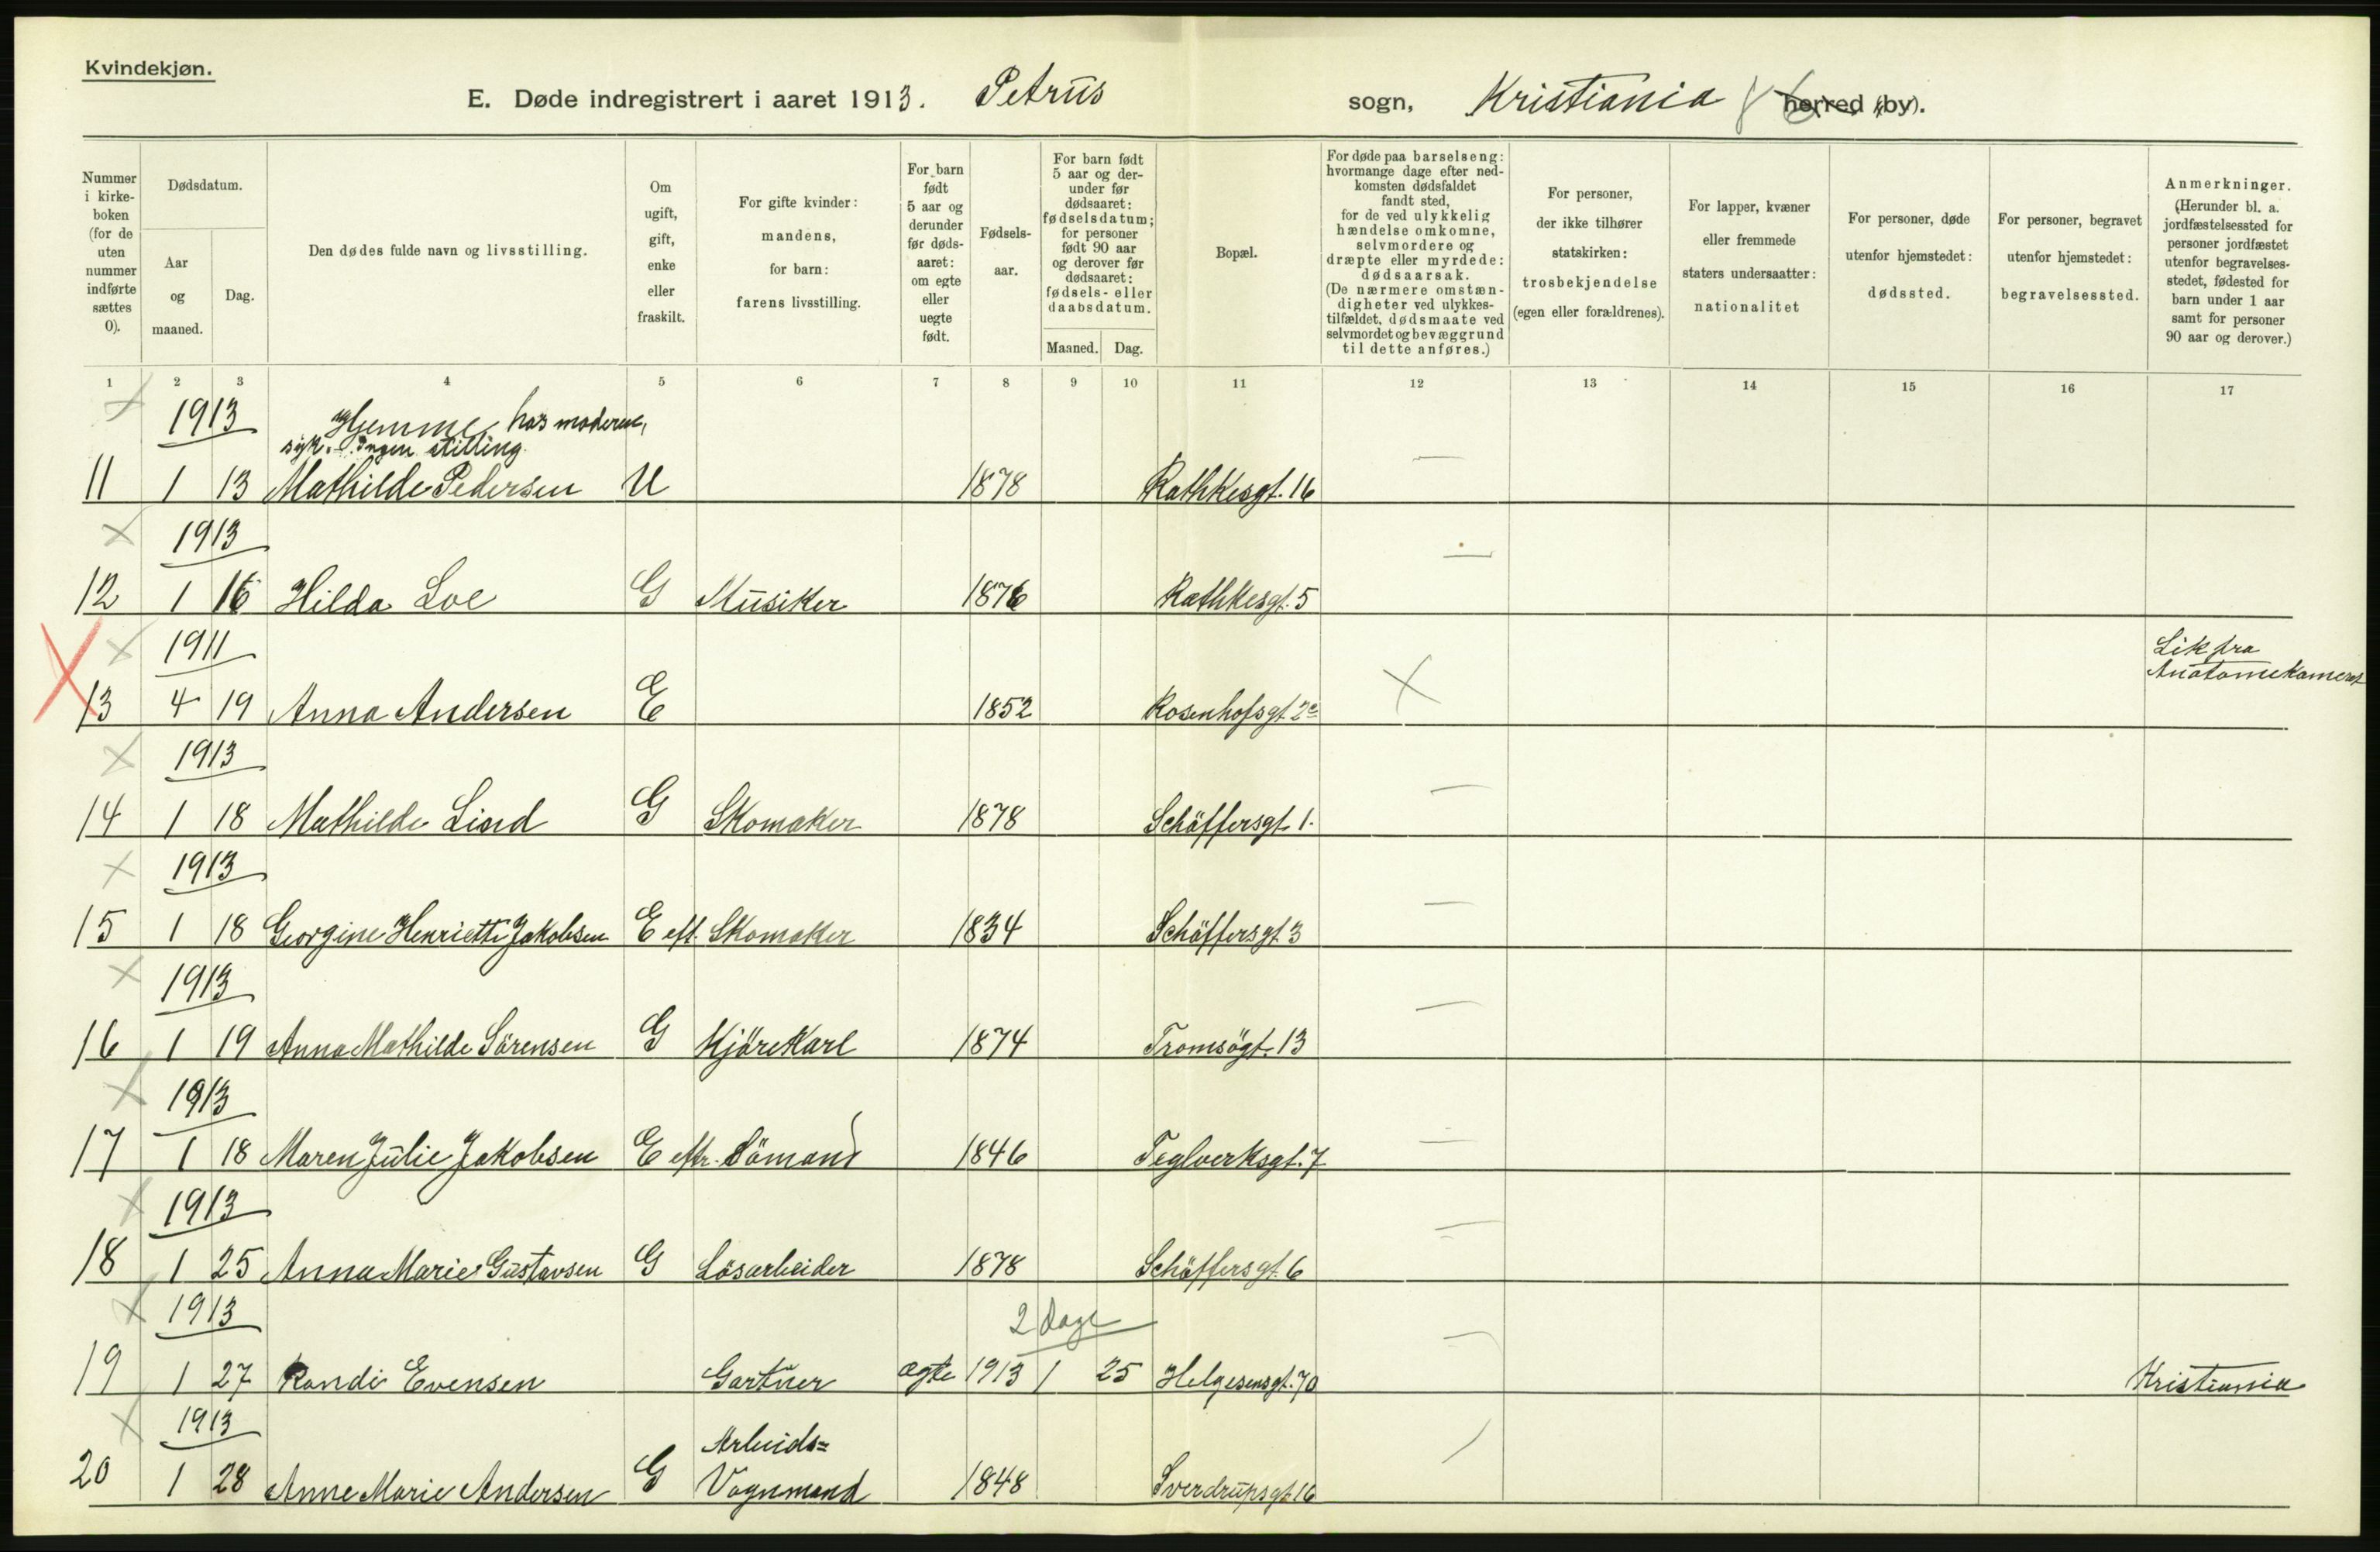 Kvindekjøn.
E. Døde indregistrert i aaret 1913. Petrus sogn, Kristiania herred (by).
Nummer i kirke-boken (for de uten nummer indførte sættes 0).
Dødsdatum.
Aar og maaned.
Dag.
Den dødes fulde navn og livsstilling.
Om ugift, gift, enke eller fraskilt.
For gifte kvinder: mandens, for barn: farens livsstilling.
For barn født 5 aar og derunder før døds-aaret: om egte eller uegte født.
Fødsels-aar.
For barn født 5 aar og der-under før dødsaaret: fødselsdatum; for personer født 90 aar og derover før dødsaaret: fødsels- eller daabsdatum.
Maaned. Dag.
Bopæl.
For døde paa barselseng: hvormange dage efter ned-komsten dødsfaldet fandt sted, for de ved ulykkelig hændelse omkomne, selvmordere og dræpte eller myrdede: dødsaarsak. (De nærmere omstæn-digheter ved ulykkes-tilfældet, dødsmaate ved selvmordet og bevæggrund til dette anføres.)
For personer, der ikke tilhører statskirken: trosbekjendelse (egen eller forældrenes).
For lapper, kvæner eller fremmede staters undersaatter: nationalitet
For personer, døde utenfor hjemstedet: dødssted.
For personer, begravet utenfor hjemstedet: begravelsessted.
Anmerkninger. (Herunder bl. a. jordfæstelsessted for personer jordfæstet utenfor begravelses-stedet, fødested for barn under 1 aar samt for personer 90 aar og derover.)
1 2 3 4 5 6 7 8 9 10 11 12 13 14 15 16 17
1913 Hjemme hos moderen,
syk. Ingen stilling.
11 1 13 Mathilde Pedersen U 1878 Rathkesgt. 16
1913
12 1 16 Hilda Loe G Musiker 1876 Rathkesgt. 5
1911 Lik fra
13 4 19 Anna Andersen E 1852 Rosenhofsgt. 2c Anatomikameret
1913
14 1 18 Mathilde Lind G Skomaker 1878 Schäffersgt. 1.
1913
15 1 18 Georgine Henriette Jakobsen E eft. Skomaker 1834 Schäffersgt. 3
1913
16 1 19 Anna Mathilde Sörensen G Kjörekarl 1874 Tromsögt. 13
1913
17 1 18 Maren Julie Jakobsen E eftr. Sömand 1846 Teglverksgt. 7
1913
18 1 25 Anna Marie Gustavsen G Lösarbeider 1878 Schäffersgt. 6
1913 2 Dage
19 1 27 Randi Evensen Gartner ægte 1913 1 25 Helgesensgt. 70 Kristiania
1913 Arbeids=
20 1 28 Anne Marie Andersen G Vognmand 1848 Sverdrupsgt. 16